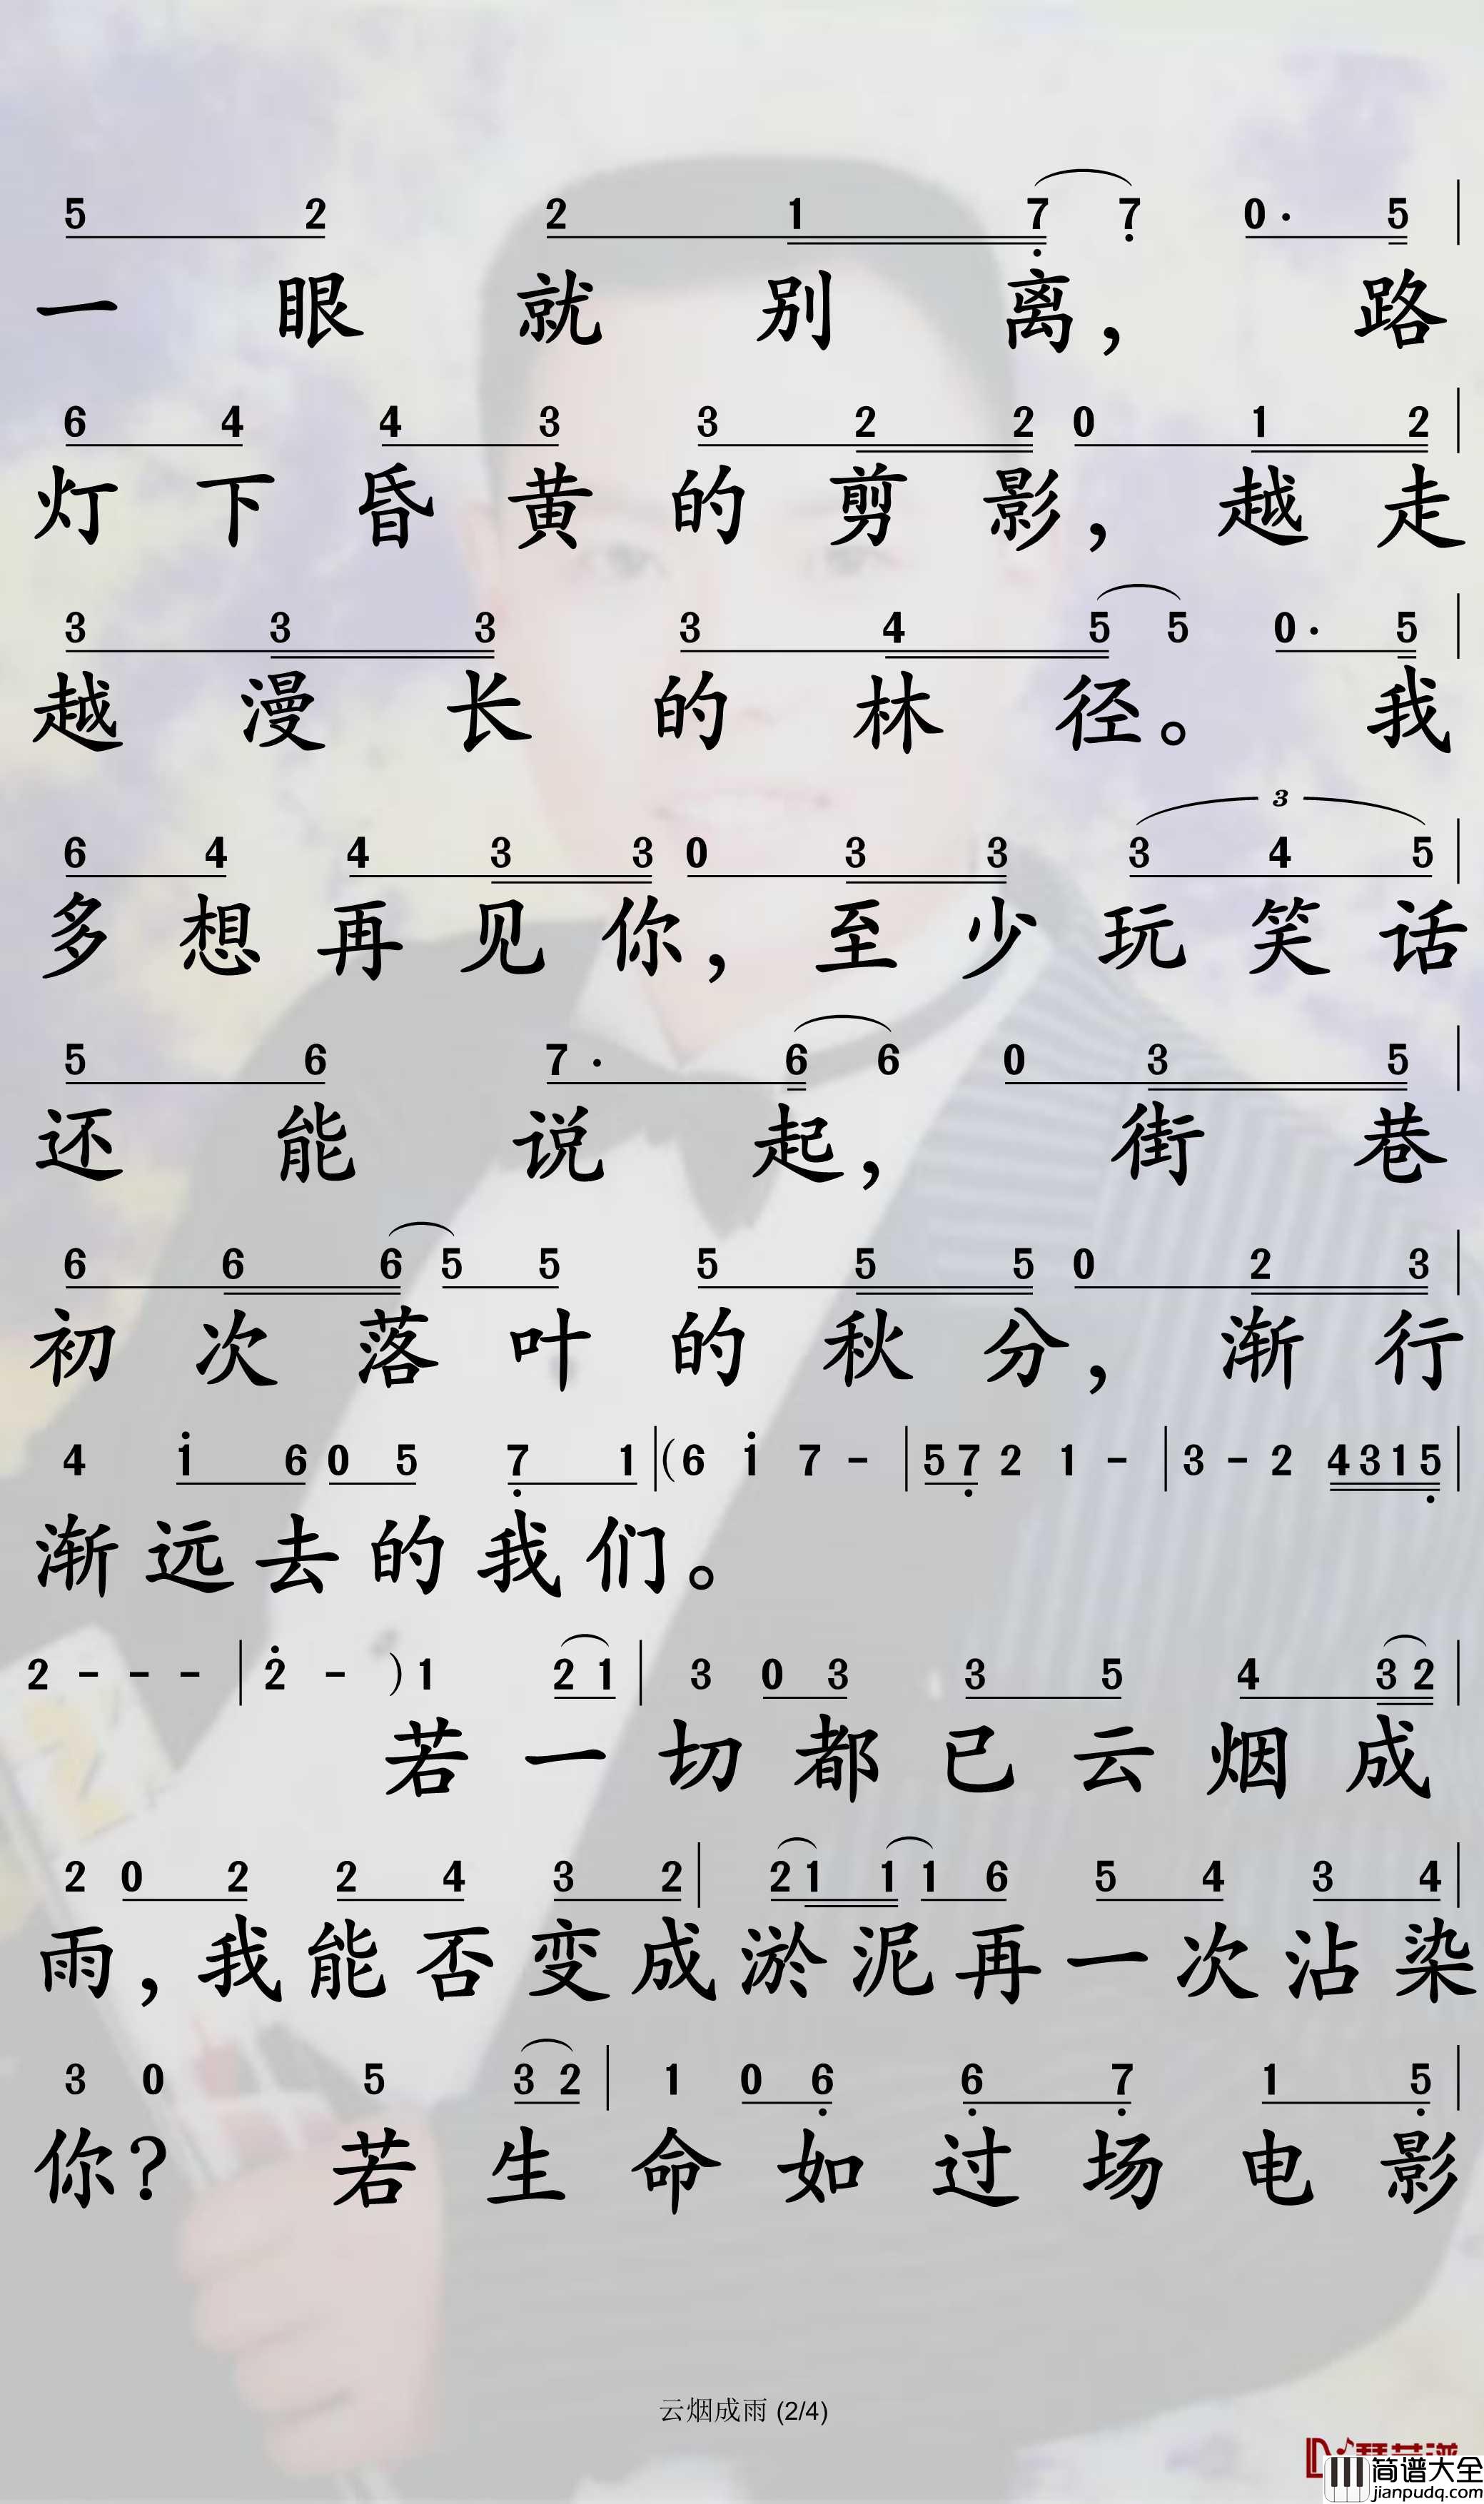 5 2 2 1 7 7 0· 5 |
一 眼 就 别 离， 路
6 4 4 3 3 2 2 0 1 2 |
灯 下 昏 黄 的 剪 影， 越 走
3 3 3 3 4 5 5 0· 5 |
越 漫 长 的 林 径。 我
3
6 4 4 3 3 0 3 3 3 4 5 |
多 想 再 见 你， 至 少 玩 笑 话
5 6 7· 6 6 0 3 5 |
还 能 说 起， 街 巷
6 6 6 5 5 5 5 5 0 2 3 |
初 次 落 叶 的 秋 分， 渐 行
4 1 6 0 5 7 1 | (6 1 7 - | 5 7 2 1 - | 3 - 2 4 3 1 5 |
渐 远 去 的 我 们。
2 - - - | 2 - ) 1 2 1 | 3 0 3 3 5 4 3 2 |
若 一 切 都 已 云 烟 成
2 0 2 2 4 3 2 | 2 1 1 1 6 5 4 3 4 |
雨， 我 能 否 变 成 淤 泥 再 一 次 沾 染
3 0 5 3 2 | 1 0 6 6 7 1 5 |
你？ 若 生 命 如 过 场 电 影
云烟成雨 (2/4)
简谱大全
jianpudq.com